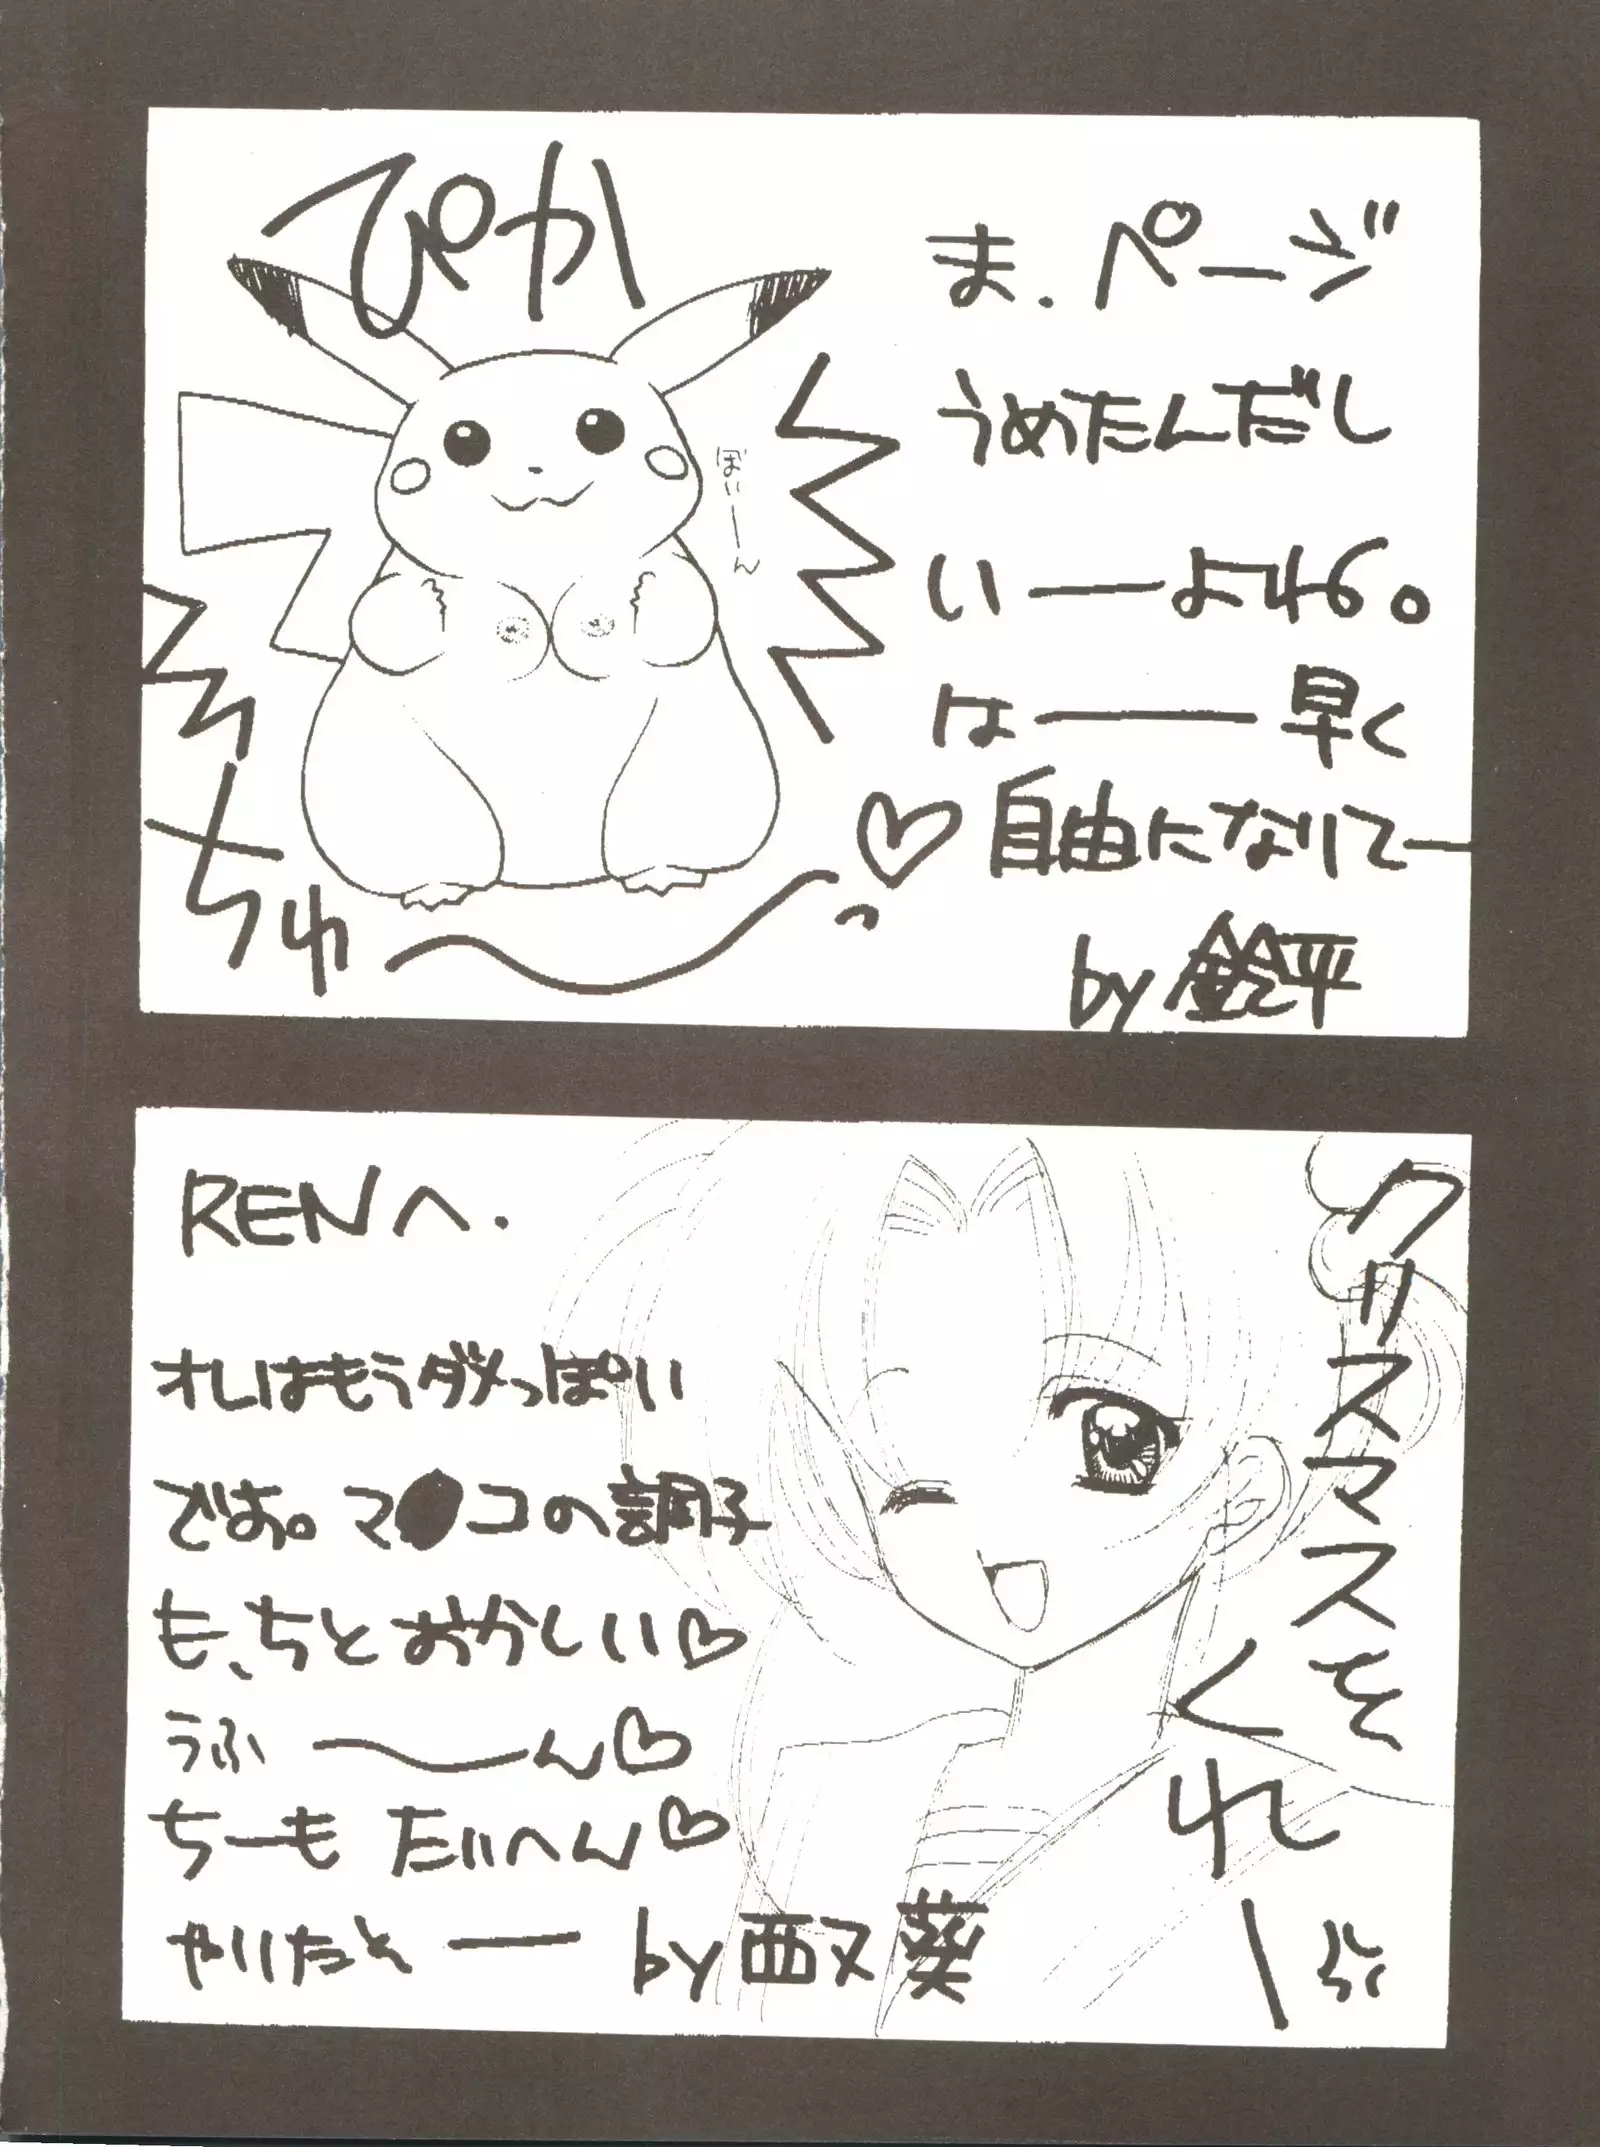 ぴか
ちゅ
ぼいーん
ま、ページ
うめたんだし
いーよね。
はーー早く
自由になりてー
by 鈴平
RENへ.
オレはもうダメっぽい
でお。マ●コの調子
も、ちとおかしい♡
うふ〜ん♡
ちーも たいへん♡
やりたとー
by 酉又葵
クリスマスを
くれー